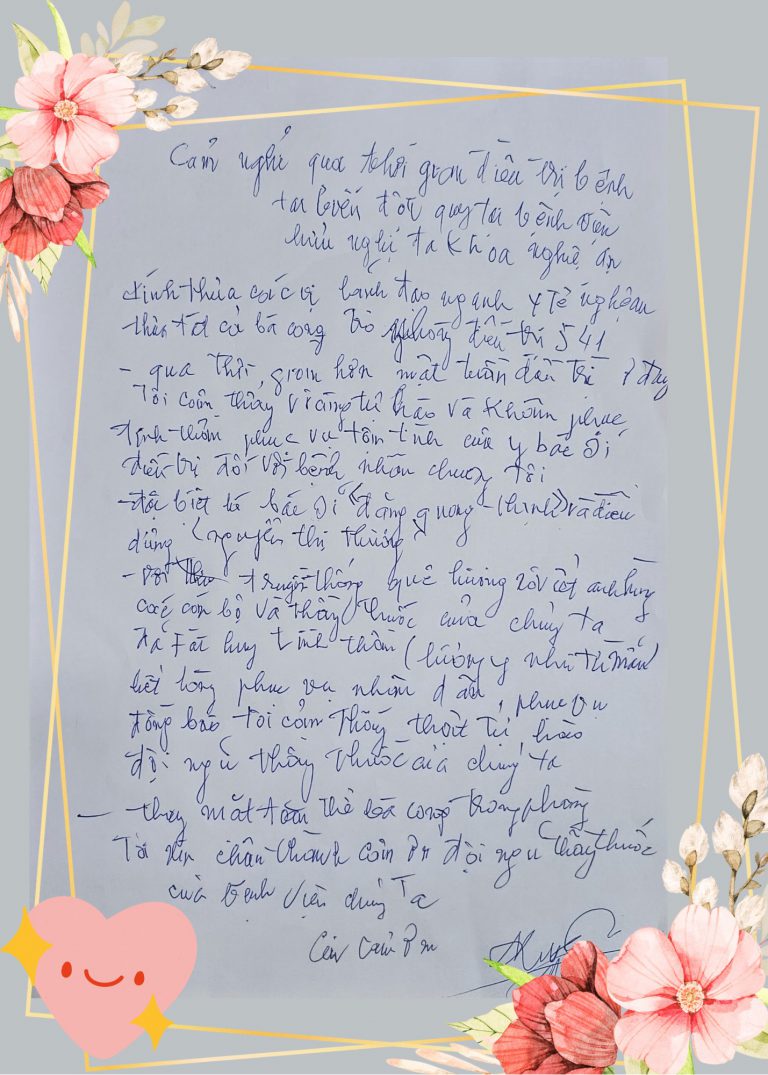 Cảm nghỉ qua thời gian điều trị bệnh
tai biến đột quỵ tại bệnh viện
hửu nghị đa khoa nghệ an
kính thưa các vị lanh đạo nghành y tế nghệ an
thưa tất cả bà con phòng điều trị 541
- qua thời gian hơn một tuần điều trị ở đây
Tôi cảm thấy tự hào và khâm phục
tinh thần phục vụ tận tình của y bác sỉ
điều trị đối với bệnh nhân chúng tôi
- đặc biệt là bác sỉ (đặng quang thịnh) và điều
dưỡng (nguyễn thị thương)
- với truyền thống quê hương xôviết anh hùng
các cán bộ và thầy thuốc của chúng ta
đã fát huy tinh thần (lương y như từ mẩu)
hết lòng phục vụ nhân dân, phục vụ
đồng bào tôi cảm thấy thật tự hào
đội ngủ thầy thuốc của chúng ta
- thay mặt toàn thể bà con trong phòng
Tôi xin chân thành cảm ơn đội ngu thầy thuốc
của bệnh viện chúng Ta
cảm ơn